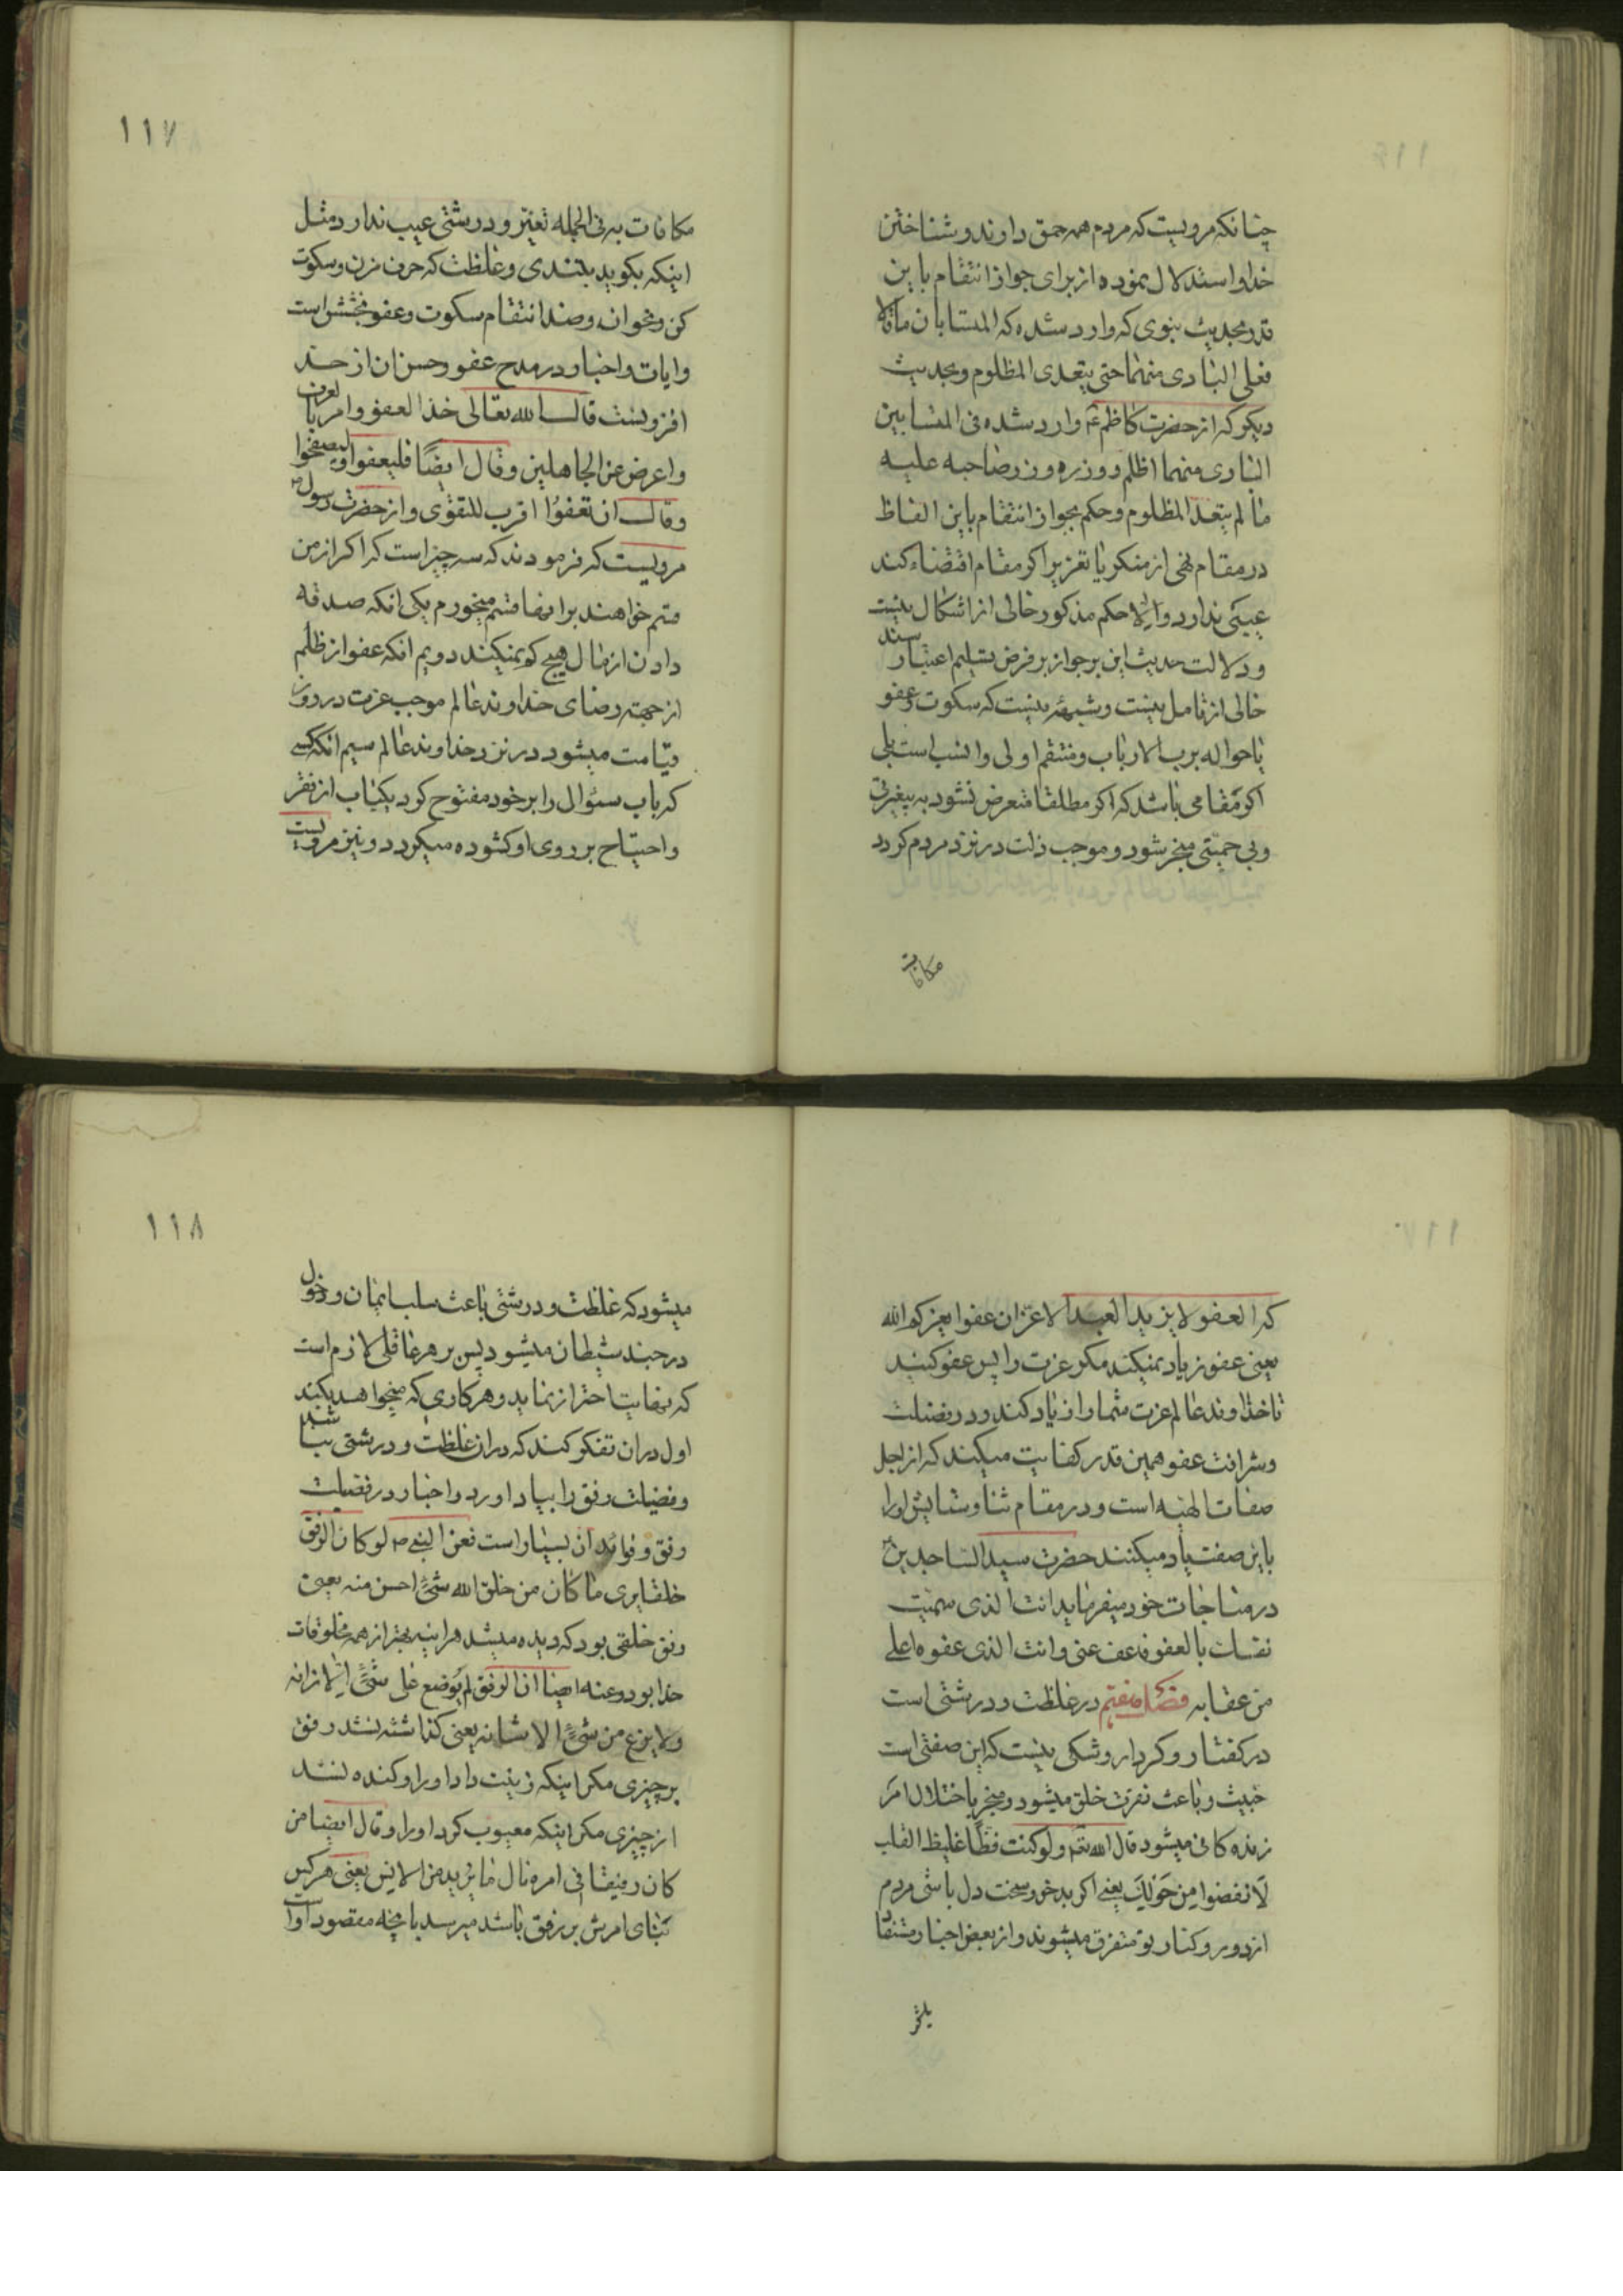 چنانکه مرویست که مردم همه حمق دارند و شناختن
خدا و استدلال نموده از برای جواز انتقام باین
قدر بحدیث نبوی که وارد شده که المتسابان ما قالا
فعلی البادی منهما حتی یتعدی المظلوم و بحدیث
دیگر که از حضرت کاظم ع وارد شده فی المتسابین
البادی منهما اظلم و وزره و وزر صاحبه علیه
ما لم یتعد المظلوم و حکم بجواز انتقام باین الفاظ
در مقام نهی از منکر یا تعزیر اگر مقام اقتضاء کند
عیبی ندارد و الا حکم مذکور خالی از اشکال نیست
و دلالت حدیث این بر جواز بر فرض تسلیم اعتبار سند
خالی از تامل نیست و شبهه نیست که سکوت و عفو
یا حواله برب الارباب و منتقم اولی و انسب است بلی
اگر مقامی باشد که اگر مطلقا متعرض نشود به بیغیرتی
و بی حمیتی منجر شود و موجب ذلت در نزد مردم گردد
مکافات
۱۱۷
مکافات به فی الجمله تغیّر و درشتی عیب ندارد مثل
اینکه بگوید بتندی و غلظت که حرف مزن و سکوت
کن و نحو ان و ضد انتقام سکوت و عفو و بخشش است
و ایات و اخبار در مدح عفو و حسن ان از حد
افزونست قال الله تعالی خذ العفو و امر بالعرف
و اعرض عن الجاهلین و قال ایضًا فلیعفوا و لیصفحوا
و قال ان تعفوُا اقرب للتقوی و از حضرت رسول ص
مرویست که فرمودند که سه چیز است که اگر از من
قسم خواهند بر انها قسم میخورم یکی انکه صدقه
دادن از مال هیچ کم نمیکند دویم انکه عفو از ظلم
از جهته رضای خداوند عالم موجب عزت در روز
قیامت میشود در نزد خداوند عالم سیم انکه کسی
که باب سئوال را بر خود مفتوح کرد یکباب از فقر
و احتیاج بر روی او کشوده میگردد و نیز مرویست
که العفو لا یزید العبد الا عزّا فاعفوا یعزکم الله
یعنی عفو زیاد نمیکند مگر عزت را پس عفو کنید
تا خداوند عالم عزت شما را زیاد کند و در فضیلت
و شرافت عفو همین قدر کفایت میکند که از اجل
صفات الهیه است و در مقام ثنا و ستایش او را
باین صفت یاد میکنند حضرت سید الساجدین ع
در مناجات خود میفرماید انت الذی سمیت
نفسک بالعفو فاعف عنی و انت الذی عفوه اعلی
من عقابه فصل هفتم در غلظت و درشتی است
در گفتار و کردار و شکی نیست که این صفتی است
خبیث و باعث نفرت خلق میشود و منجر باختلال امر
زنده کانی میشود قال الله تع و لو کنت فظّا غلیظ القلب
لَانفضوا مِن حَولِکَ یعنی اگر بدخو و سخت دل باشی مردم
از دور و کنار تو متفرق میشوند و از بعض اخبار مستفاد
۱۱۸
میشود که غلظت و درشتی باعث سلب ایمان و دخول
در جند شیطان میشود پس بر هر عاقلی لازم است
که نهایت احتراز نماید و هر کاری که میخواهد بکند
اول در ان تفکر کند که در ان غلظت و درشتی نباشد
و فضیلت رفق را بیاد اورد و اخبار در فضیلت
رفق و فوائد ان بسیار است فعن النبی ص لو کان الرفق
خلقا یری ما کان من خلق الله شئٌ احسن منه یعنی
رفق خلقی بود که دیده میشد هراینه بهتر از همه مخلوقات
خدا بود و عنه ایضا ان الرفق لم یُوضع علی شئٍ الا زانه
و لا ینزع من شئٍ الا شانه یعنی گذاشته نشد رفق
بر چیزی مگر اینکه زینت داد او را و کنده نشد
از چیزی مگر اینکه معیوب کرد او را و قال ایضا من
کان رفیقا فی امره نال ما یرید من الانس یعنی هر کس
بنای امرش بر رفق باشد میرسد بانچه مقصود او است